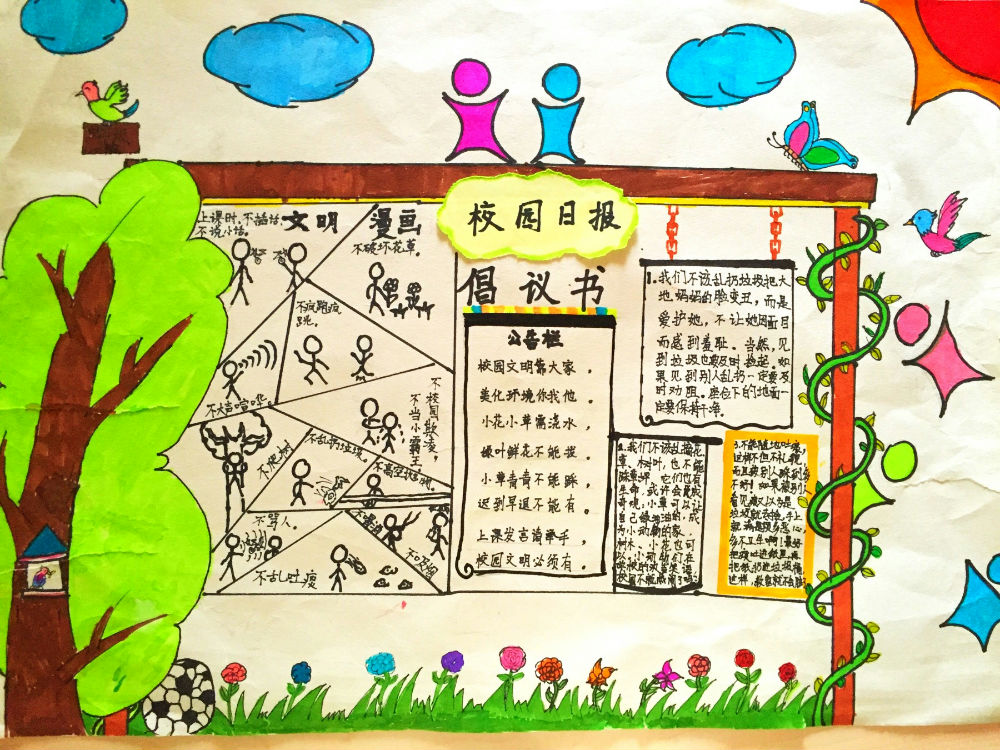 校园日报
文明 漫画
上课时,不插话,
不说小话。
不破坏花草。
不疯跑疯
跳。
不大声喧哗。
不校园欺凌,
不当小霸王
不爬树
不乱扔垃圾。
不高空抛物。
不骂人。
不乱吐痰
倡议书
公告栏
校园文明靠大家,
美化环境你我他。
小花小草需浇水,
绿叶鲜花不能拔。
小草青青不能踩,
迟到早退不能有。
上课发言请举手,
校园文明必须有。
1.我们不该乱扔垃圾把大
地妈妈的脸变丑,而是
爱护她,不让她因面目
而感到羞耻。当然,见
到垃圾也要及时捡起。如
果见到别人乱扔一定要及
时劝阻。座位下的地面一
定要保持干净。
2.我们不该乱摘花
草、树叶,也不能
踩草坪。它们也有
生命,或许会变成
奇观,小草可以让
自己绿油油的,成
为小动物的家。
树木、小花也可
3.不能随地吐痰,
这样不但不礼貌,
而且被别人踩到多
不好!如果被别人